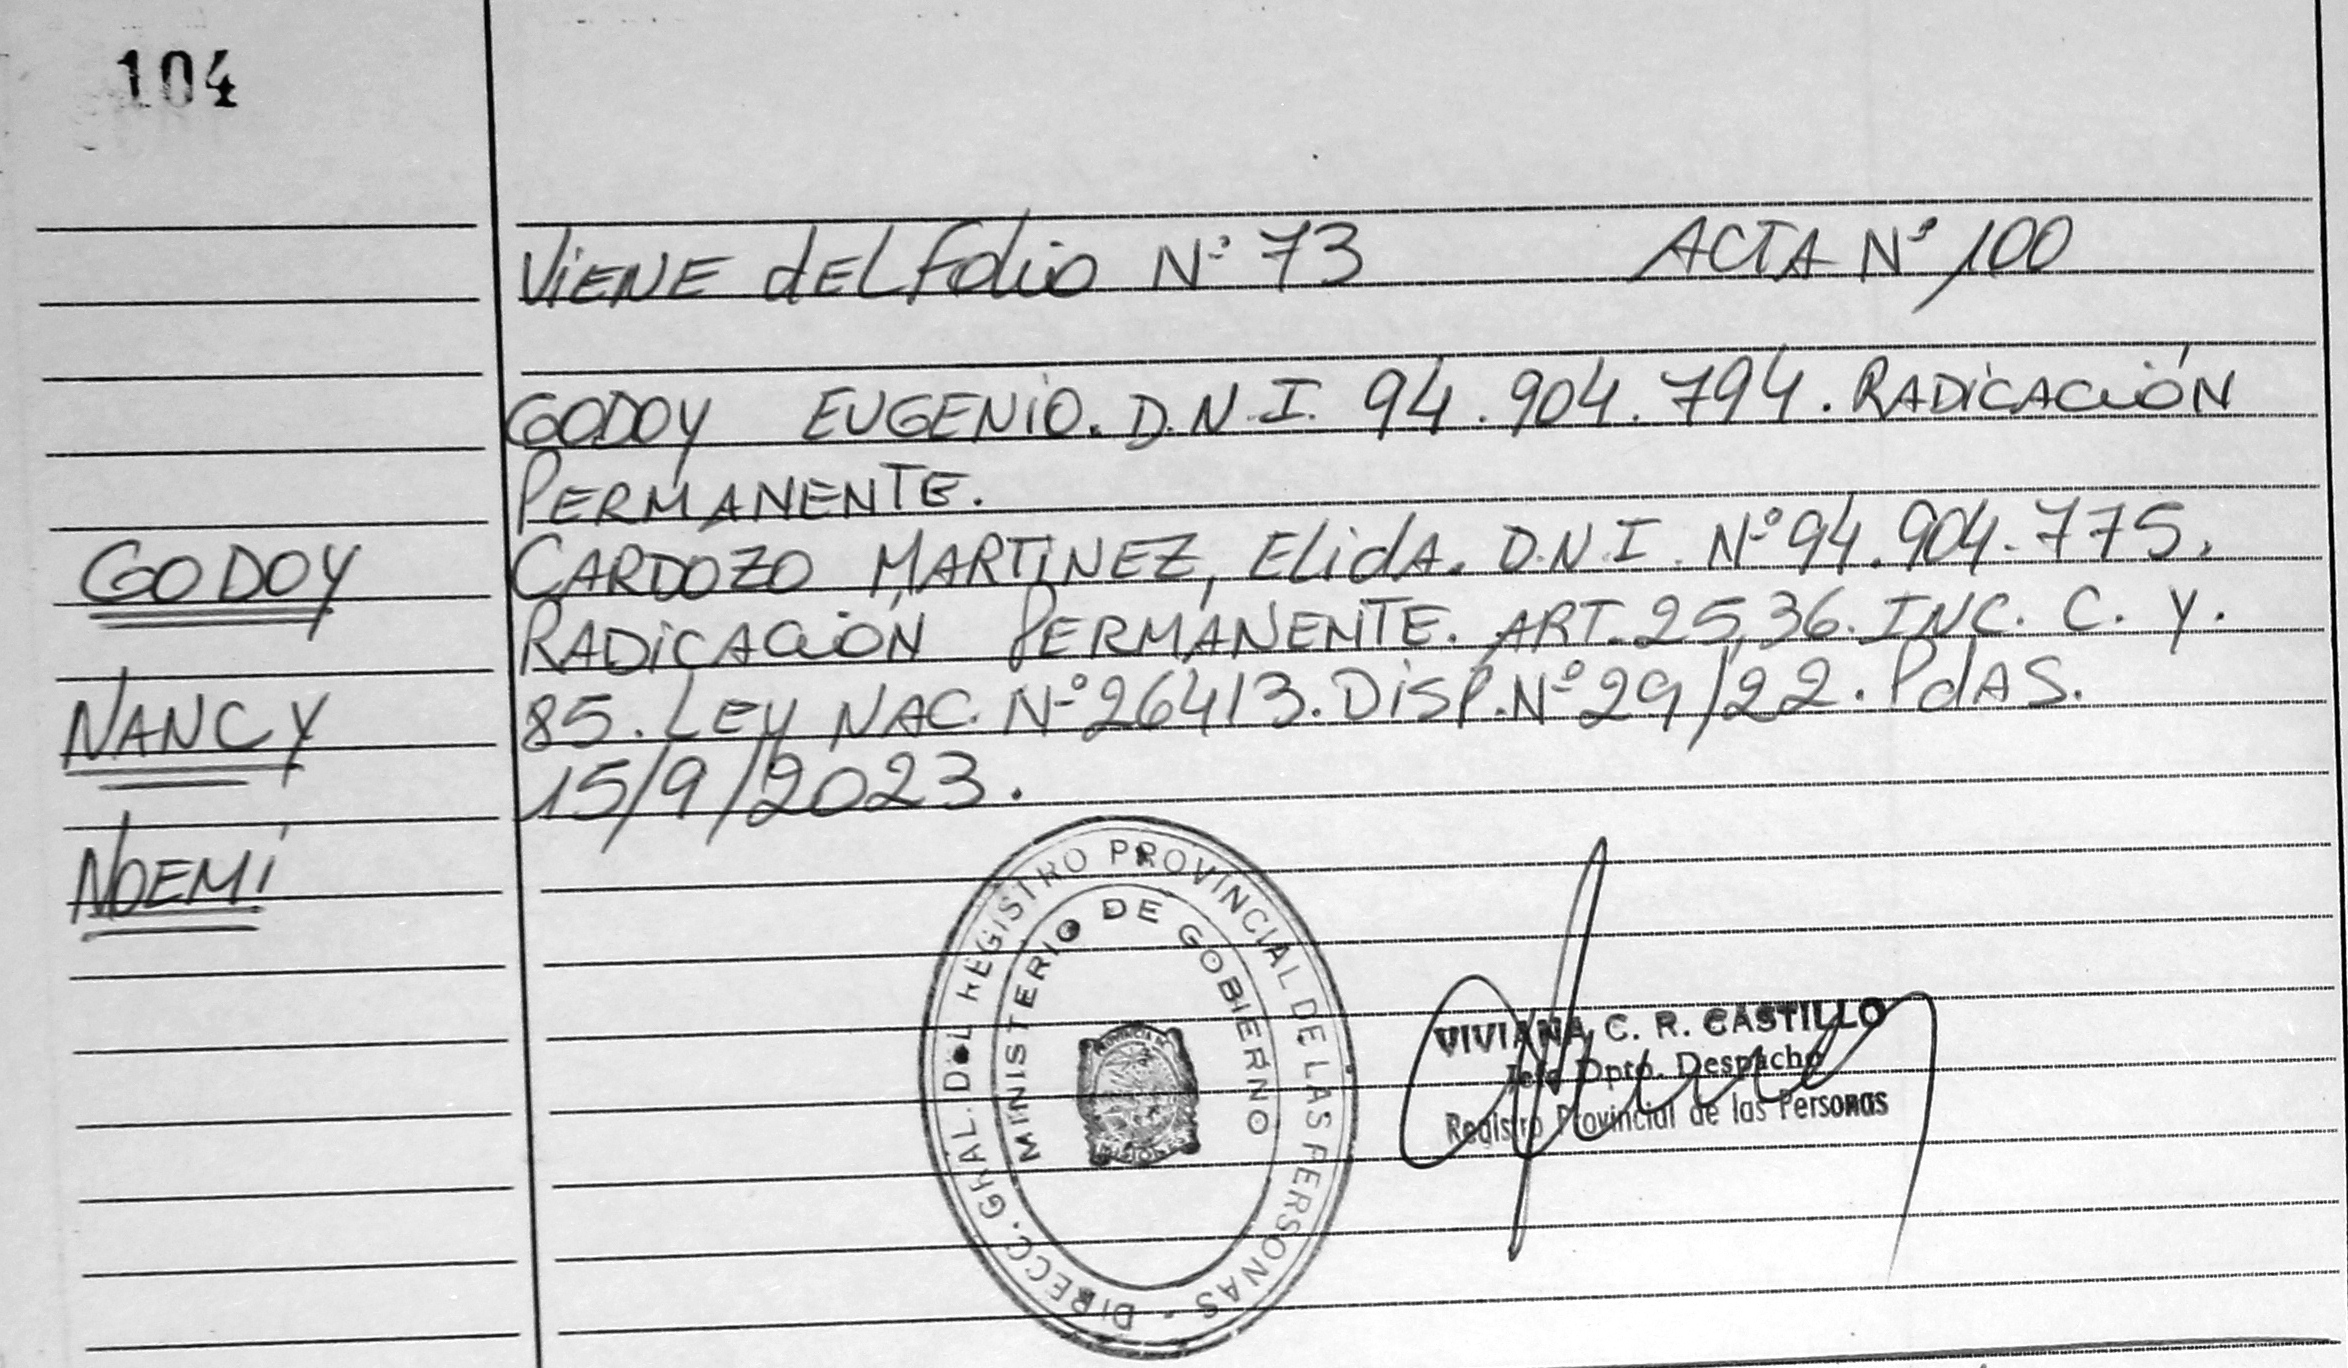 104
ViENE dEL folio Nº 73 ACTA Nº 100
GODOY EUGENiO. D.N.I. 94.904.794. RADiCACiÓN
PERMANENTE.
GODOY
CARDOZO MARTINEZ, ELidA. D.N.I. Nº 94.904.775.
RADiCACiÓN PERMANENTE. ART. 25,36. INC. C. Y.
NANCY
85. LEY NAC. Nº 26413. DiSP. Nº 29/22. PdAS.
15/9/2023.
NOEMÍ
DIRECC. GRAL. DEL REGISTRO PROVINCIAL DE LAS PERSONAS -
MINISTERIO DE GOBIERNO
VIVIANA C. R. CASTILLO
Jefe Dpto. Despacho
Registro Provincial de las Personas